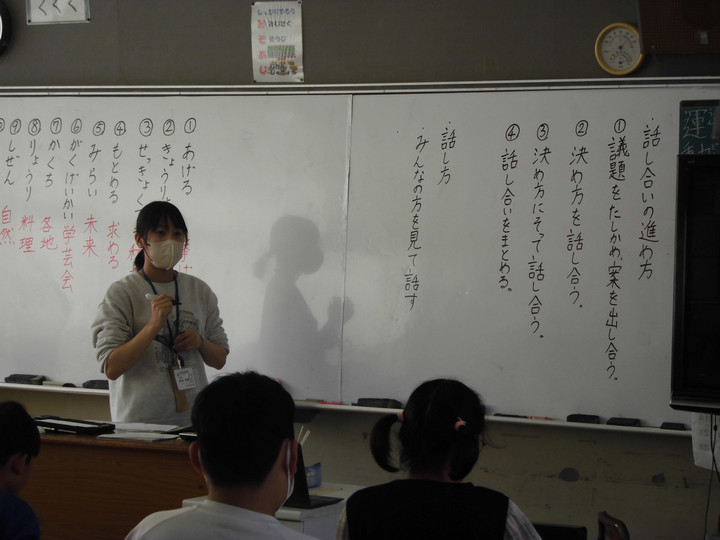 ・話し合いの進め方
①議題をたしかめ、案を出し合う。
②決め方を話し合う。
③決め方にそって話し合う。
④話し合いをまとめる。
・話し方
・みんなの方を見て話す
①あげる
②きょうりょ
③せっきょく
④もとめる 求める
⑤みらい 未来
⑥がくげいかい 学芸会
⑦かくち 各地
⑧りょうり 料理
⑨しぜん 自然
くくく